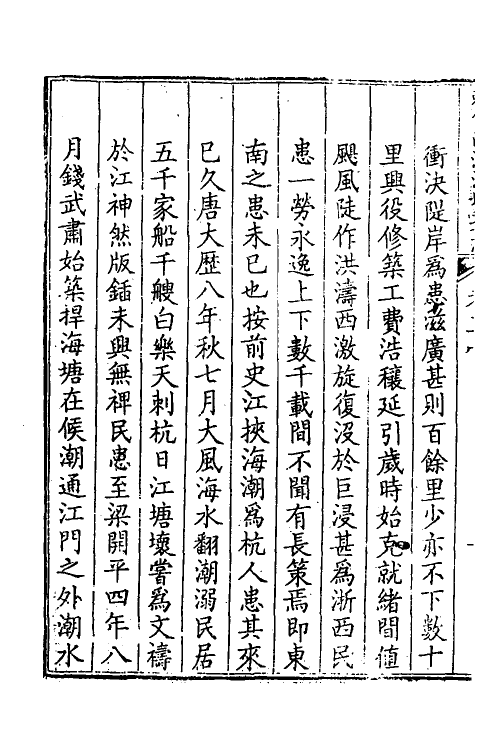 衝決隄岸為患滋廣甚則百餘里少亦不下數十
里興役修築工費浩穰延引歲時始克就緒間值
颶風陡作洪濤西激旋復沒於巨浸甚為浙西民
患一勞永逸上下數千載間不聞有長策焉即東
南之患未已也按前史江挾海潮為杭人患其來
已久唐大歷八年秋七月大風海水翻潮溺民居
五千家船千艘白樂天刺杭日江塘壞嘗為文禱
於江神然版鍤未興無裨民患至梁開平四年八
月錢武肅始築捍海塘在候潮通江門之外潮水